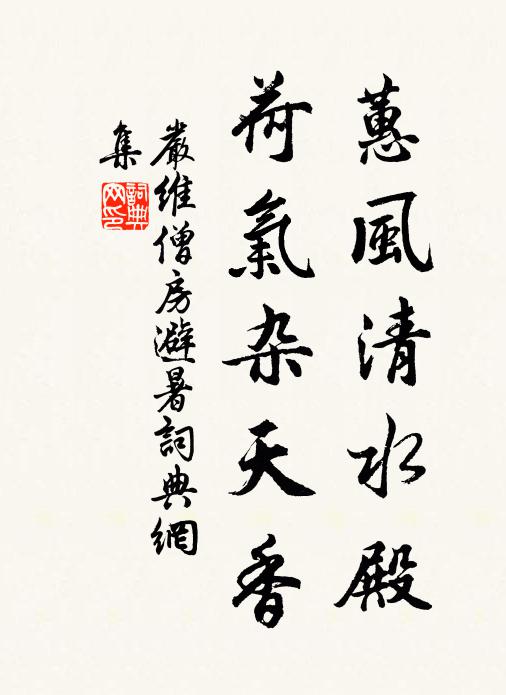 蕙風清水殿
荷氣杂天香
嚴維僧房避暑詞典網
集
詞典
网印